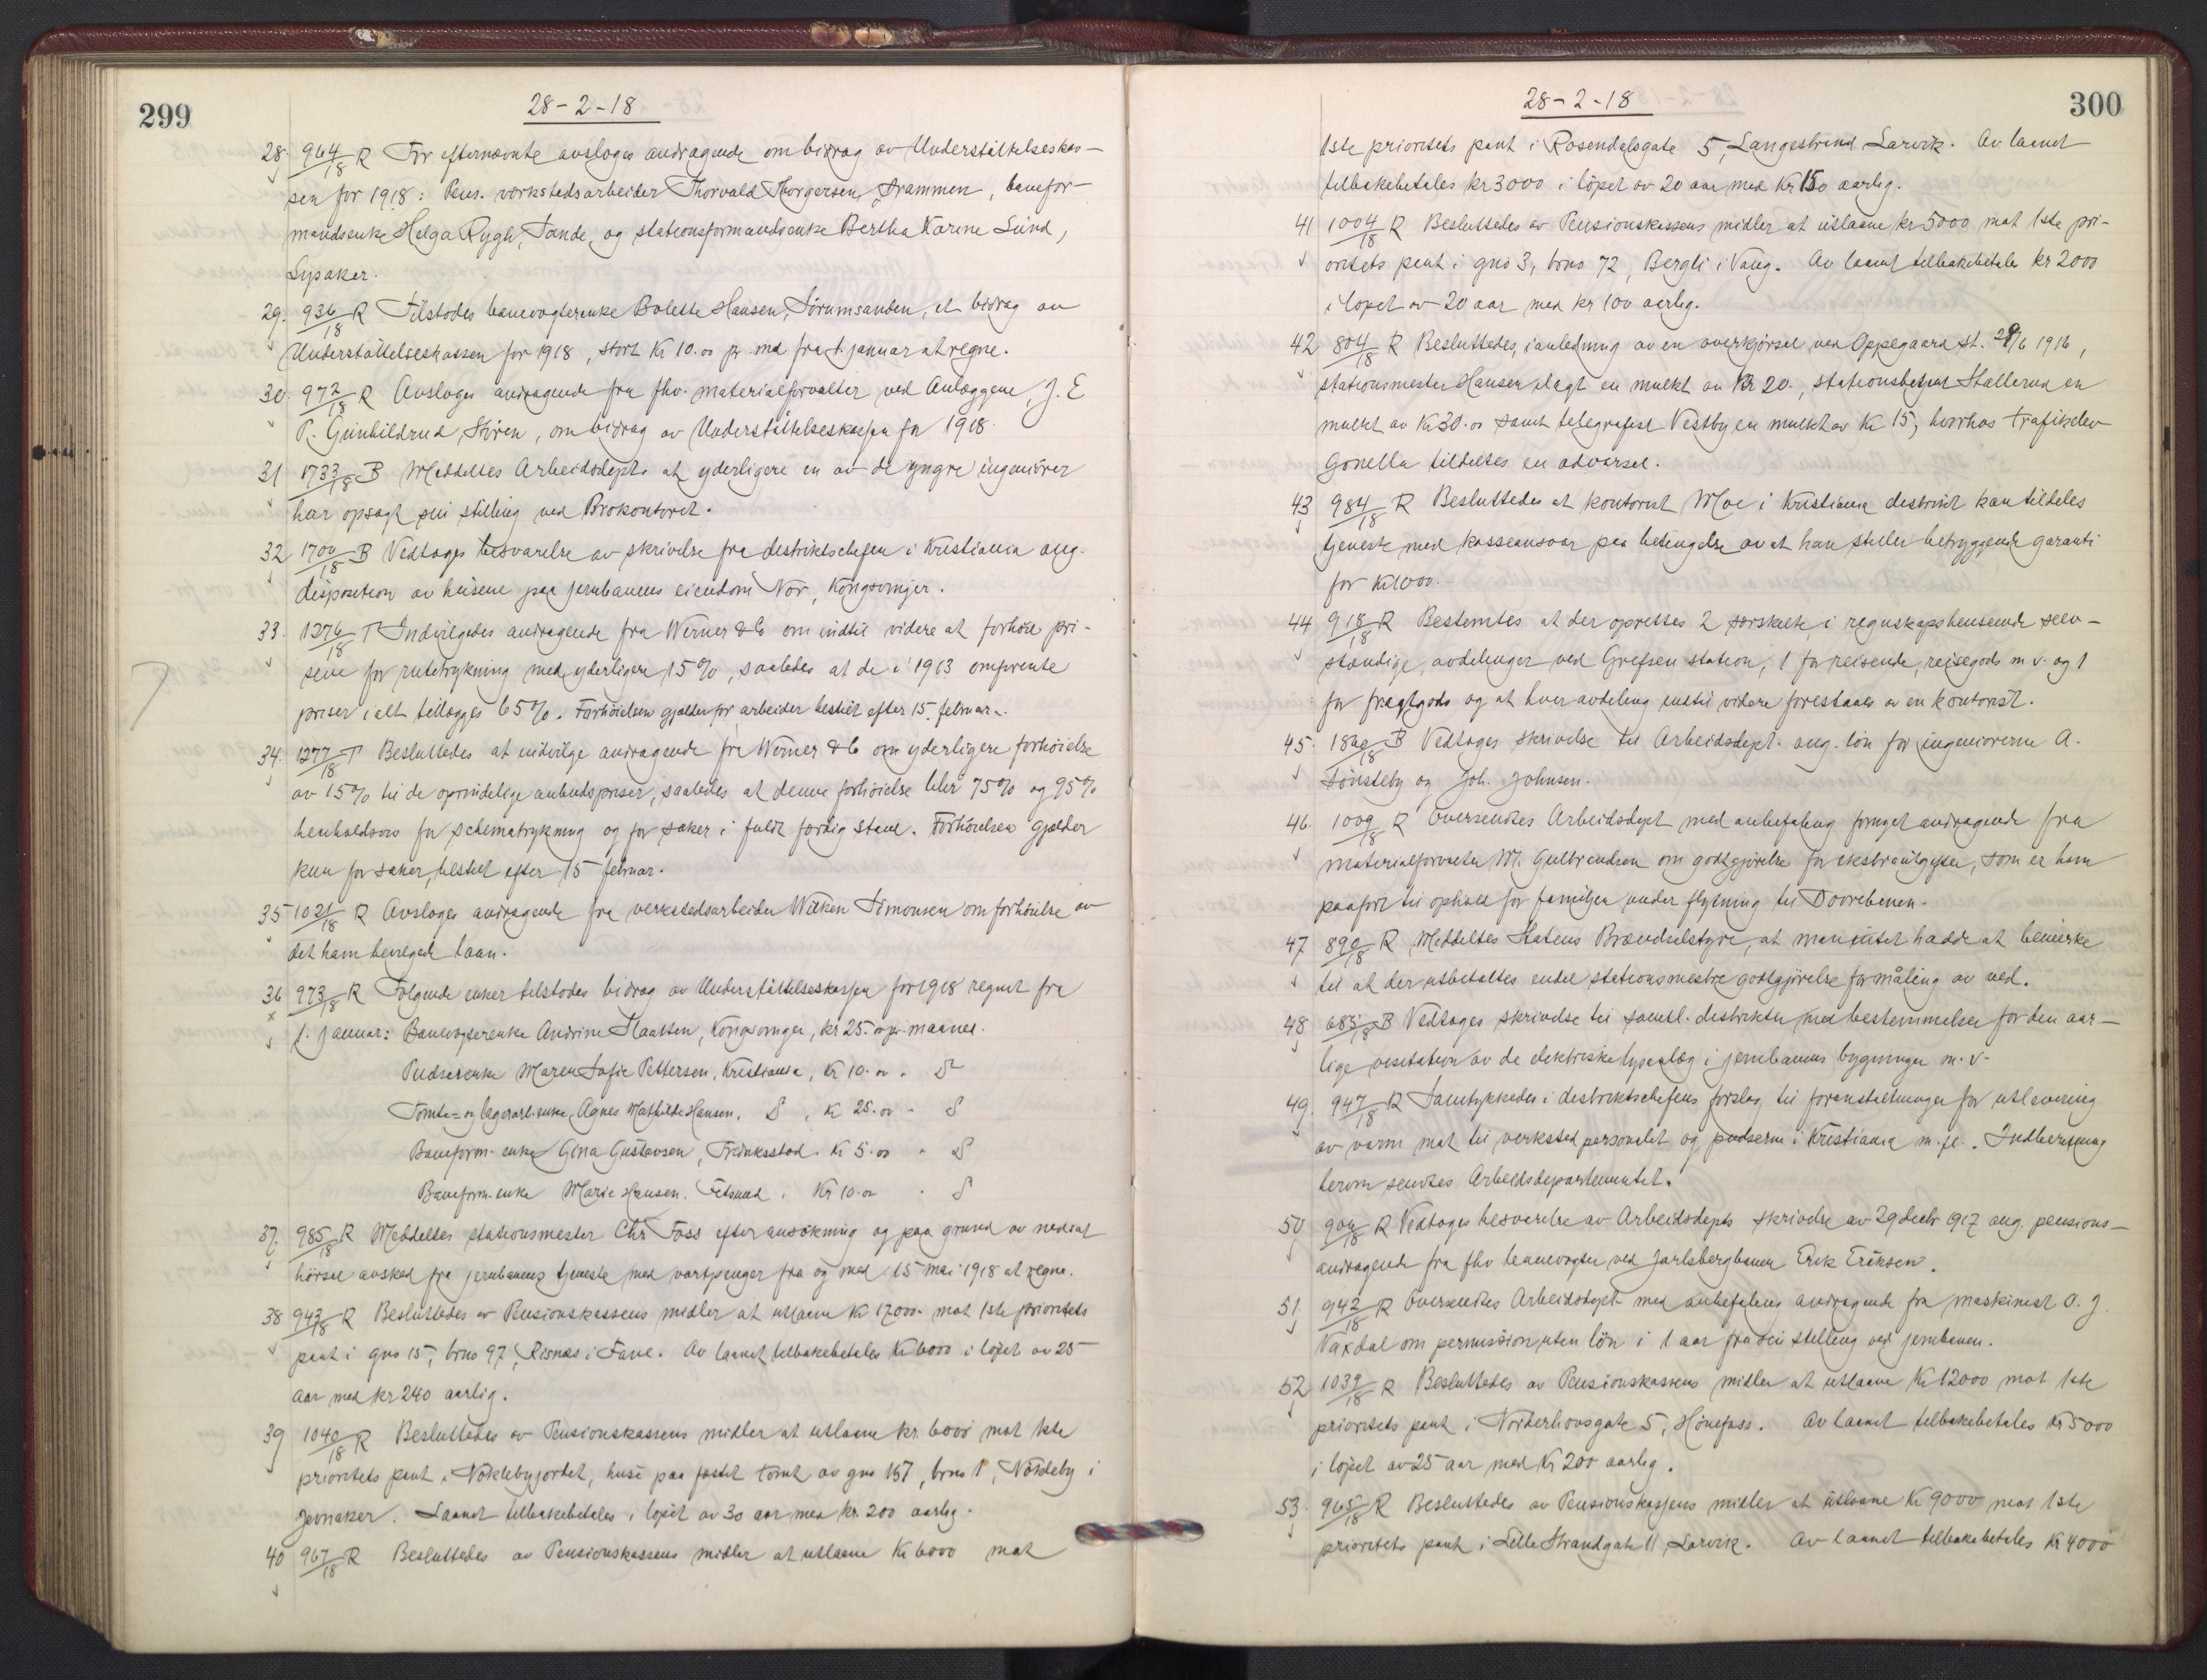 299
28-2-18
28. 964/18 R For efternævnte avsloges andragende om bidrag av Understøttelseskas-
sen for 1918: Pens. værkstedsarbeider Thorvald Thorgersen, Drammen, banefor-
mandsenke Helga Rygh, Sande, og stationsformandsenke Bertha Karine Lund,
Lysaker.
29. 936/18 R Tilstodes banevogterenke Bolette Hansen, Sørumsanden, et bidrag av
Understøttelseskassen for 1918, stort kr 10.00 pr. md fra 1. januar at regne.
30. 972/18 R Avsloges andragende fra fhv. materialforvalter ved Anlæggene, J. E
P. Gunhildrud, Støren, om bidrag av Understøttelseskassen for 1918.
31 1733/18 B Meddeltes Arbeidsdept. at yderligere en av de yngre ingeniører
har opsagt sin stilling ved Brokontoret.
32 1700/18 B Vedtoges besvarelse av skrivelse fra distriktschefen i Kristiania ang.
disposition av husene paa jernbanens eiendom Nor, Kongsvinger.
33. 1276/18 T Indvilgedes andragende fra Werner & Co om indtil videre at forhøie pri-
sene for rutetrykning med yderligere 15%, saaledes at de i 1913 omforente
priser i alt tillægges 65%. Forhøielsen gjælder for arbeider bestilt efter 15. februar.
34. 1277/18 T Besluttedes at indvilge andragende fra Werner & Co om yderligere forhøielse
av 15% til de oprindelige anbudspriser, saaledes at denne forhøielse blir 75% og 95%
henholdsvis for schematrykning og for saker i fuldt færdig stand. Forhøielsen gjælder
kun for saker, bestilt efter 15 februar.
35 1021/18 R Avsloges andragende fra verkstedsarbeider Wilken Simonsen om forhøielse av
det ham bevilgede laan.
36 973/18 R Følgende enker tilstodes bidrag av Understøttelseskassen for 1918 regnet fra
1. januar: Banevogterenke Andrine Slaatten, Kongsvinger, kr 25.00 pr. maaned.
Pudserenke Maren Sofie Pettersen, Kristiania, kr 10.00 "
Tomte- og lagerarb. enke, Agnes Mathilde Hansen, kr 25.00 "
Baneform. enke Gina Gustavsen, Fredriksstad. kr 5.00 "
Baneform. enke Marie Hansen. Fetsund, kr 10.00 "
37. 985/18 R Meddeltes stationsmester Chr. Foss efter ansøkning og paa grund av nedsat
hørsel avsked fra jernbanens tjeneste med vartpenger fra og med 15 mai 1918 at regne.
38 943/18 R Besluttedes av Pensionskassens midler at utlaane kr 17000 mot 1ste prioritets
pant i gno 15, bno 97, Risnæs i Fane. Av laanet tilbakebetales kr 6000 i løpet av 25
aar med kr 240 aarlig.
39 1040/18 R Besluttedes av Pensionskassens midler at utlaane kr. 6000 mot 1ste
prioritets pant i Nøklebyjordet, huse paa fæstet tomt av gno 157, bno 1, Nøkleby i
Jevnaker. Laanet tilbakebetales i løpet av 30 aar med kr. 200 aarlig.
40 967/18 R Besluttedes av Pensionskassens midler at utlaane kr 6000 mot
300
28-2-18
1ste prioritets pant i Rosendalsgate 5, Langestrand Larvik. Av laanet
tilbakebetales kr 3000 i løpet av 20 aar med kr 150 aarlig.
41 1004/18 R Besluttedes av Pensionskassens midler at utlaane kr 5000 mot 1ste pri-
oritets pant i gno 3, bno 72, Bergli i Vang. Av laanet tilbakebetales kr 2000
i løpet av 20 aar med kr 100 aarlig.
42 804/18 R Besluttedes, i anledning av en overkjørsel ved Oppegaard st. 29/6 1916,
stationsmester Hansen ilagt en mulkt av kr 20., stationsbetjent Stallerud en
mulkt av kr 30.00 samt telegrafist Vestby en mulkt av kr 15, hvorhos trafikelev
Gonella tildeltes en advarsel.
43 984/18 R Besluttedes at kontorist Moe i Kristiania distrikt kan tildeles
tjeneste med kasseansvar paa betingelse av at han stiller betryggende garanti
for kr 1000.
44 918/18 R Bestemtes at der oprettes 2 særskilte, i regnskapshenseende selv-
stændige, avdelinger ved Grefsen station, 1 for reisende, reisegods m.v. og 1
for fragtgods og at hver avdeling indtil videre forestaaes av en kontorist.
45. 1860/18 B Vedtoges skrivelse til Arbeidsdept. ang. løn for ingeniørerne A.
Sønsteby og Joh. Johnsen.
46. 1009/18 R Oversendtes Arbeidsdept med anbefaling fornyet andragende fra
materialforvalter M. Gulbrandsen om godtgjørelse for ekstrautgifter, som er ham
paaført til ophold for familjen under flytning til Dovrebanen.
47 890/18 R Meddeltes Statens Brændselstyre, at man intet hadde at bemerke
til at der utbetaltes endel stationsmestre godtgjørelse for måling av ved.
48 685/18 B Vedtoges skrivelse til samtl. distrikter med bestemmelser for den aar-
lige visitation av de elektriske lysanlæg i jernbanens bygninger m.v.
49. 947/18 R Samtykkedes i distriktschefens forslag til foranstaltninger for utlevering
av varm mat til verkstedpersonalet og pudserne i Kristiania m.fl. Indberetning
herom sendtes Arbeidsdepartementet.
50 904/18 R Vedtoges besvarelse av Arbeidsdepts skrivelse av 29 decbr 1917 ang. pensions-
andragende fra fhv banevogter ved Jarlsbergbanen Erik Eriksen.
51. 942/18 R Oversendtes Arbeidsdept med anbefaling andragende fra maskinist O. J.
Vaxdal om permission uten løn i 1 aar fra sin stilling ved jernbanen.
52 1039/18 R Besluttedes av Pensionskassens midler at utlaane kr 12000 mot 1ste
prioritets pant i Norderhovsgate 5, Hønefoss. Av laanet tilbakebetales kr 5000
i løpet av 25 aar med kr 200 aarlig.
53. 965/18 R Besluttedes av Pensionskassens midler at utlaane kr 9000 mot 1ste
prioritets pant i Lille Strandgate 11, Larvik. Av laanet tilbakebetales kr 4000